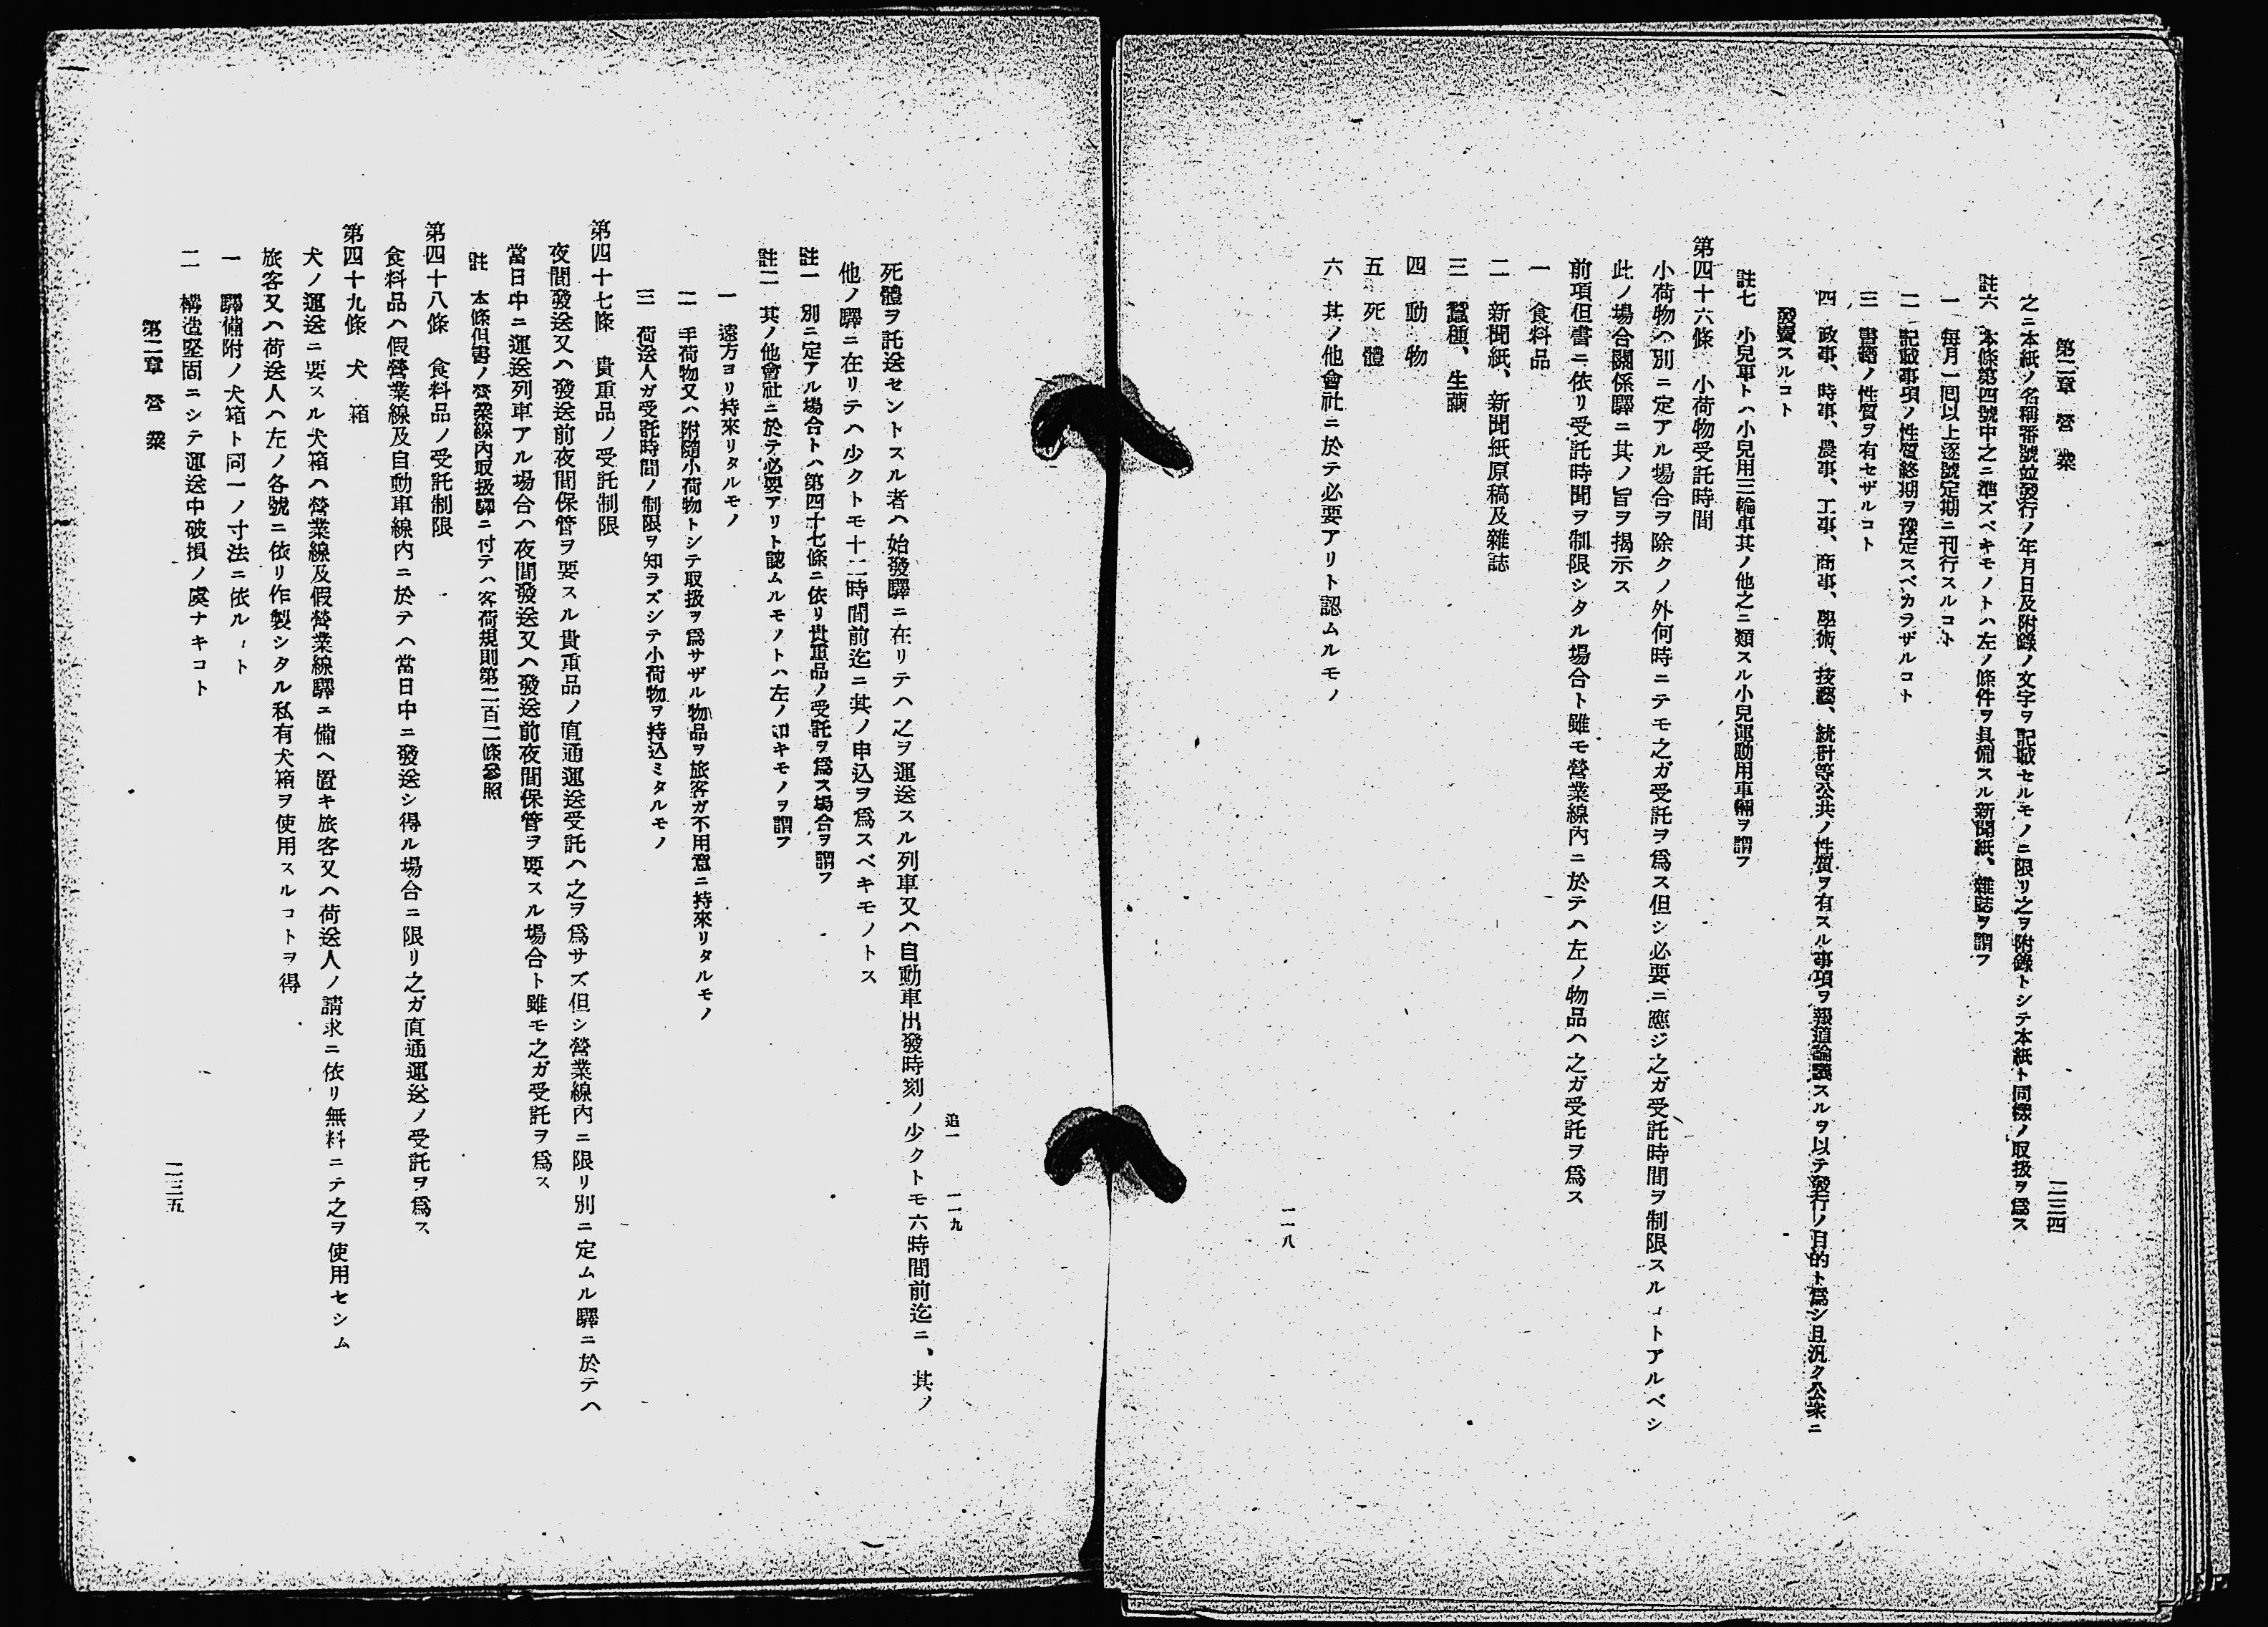 第二章　營　業
二三四
之ニ本紙ノ名稱番號竝發行ノ年月日及附錄ノ文字ヲ記載セルモノニ限リ之ヲ附錄トシテ本紙ト同樣ノ取扱ヲ爲ス
註六　本條第四號中之ニ準ズベキモノトハ左ノ條件ヲ具備スル新聞紙、雜誌ヲ謂フ
一　每月一囘以上逐號定期ニ刊行スルコト
二　記載事項ノ性質終期ヲ豫定スベカラザルコト
三　書籍ノ性質ヲ有セザルコト
四　政事、時事、農事、工事、商事、學術、技藝、統計等公共ノ性質ヲ有スル事項ヲ報道論議スルヲ以テ發行ノ目的ト爲シ且汎ク公衆ニ
發賣スルコト
註七　小兒車トハ小兒用三輪車其ノ他之ニ類スル小兒運動用車輛ヲ謂フ
第四十六條　小荷物受託時間
小荷物ハ別ニ定アル場合ヲ除クノ外何時ニテモ之ガ受託ヲ爲ス但シ必要ニ應ジ之ガ受託時間ヲ制限スルコトアルベシ
此ノ場合關係驛ニ其ノ旨ヲ揭示ス
前項但書ニ依リ受託時間ヲ制限シタル場合ト雖モ營業線內ニ於テハ左ノ物品ハ之ガ受託ヲ爲ス
一　食料品
二　新聞紙、新聞紙原稿及雜誌
三　蠶種、生繭
四　動　物
五　死　體
六　其ノ他會社ニ於テ必要アリト認ムルモノ
一一八
追一　一一九
死體ヲ託送セントスル者ハ始發驛ニ在リテハ之ヲ運送スル列車又ハ自動車出發時刻ノ少クトモ六時間前迄ニ、其ノ
他ノ驛ニ在リテハ少クトモ十二時間前迄ニ其ノ申込ヲ爲スベキモノトス
註一　別ニ定アル場合トハ第四十七條ニ依リ貴重品ノ受託ヲ爲ス場合ヲ謂フ
註二　其ノ他會社ニ於テ必要アリト認ムルモノトハ左ノ如キモノヲ謂フ
一　遠方ヨリ持來リタルモノ
二　手荷物又ハ附隨小荷物トシテ取扱ヲ爲サザル物品ヲ旅客ガ不用意ニ持來リタルモノ
三　荷送人ガ受託時間ノ制限ヲ知ラズシテ小荷物ヲ持込ミタルモノ
第四十七條　貴重品ノ受託制限
夜間發送又ハ發送前夜間保管ヲ要スル貴重品ノ直通運送受託ハ之ヲ爲サズ但シ營業線內ニ限リ別ニ定ムル驛ニ於テハ
當日中ニ運送列車アル場合ハ夜間發送又ハ發送前夜間保管ヲ要スル場合ト雖モ之ガ受託ヲ爲ス
註　本條但書ノ營業線內取扱驛ニ付テハ客荷規則第二百二條參照
第四十八條　食料品ノ受託制限
食料品ハ假營業線及自動車線內ニ於テハ當日中ニ發送シ得ル場合ニ限リ之ガ直通運送ノ受託ヲ爲ス
第四十九條　犬　箱
犬ノ運送ニ要スル犬箱ハ營業線及假營業線驛ニ備ヘ置キ旅客又ハ荷送人ノ請求ニ依リ無料ニテ之ヲ使用セシム
旅客又ハ荷送人ハ左ノ各號ニ依リ作製シタル私有犬箱ヲ使用スルコトヲ得
一　驛備附ノ犬箱ト同一ノ寸法ニ依ルコト
二　構造堅固ニシテ運送中破損ノ虞ナキコト
第二章　營　業
二三五